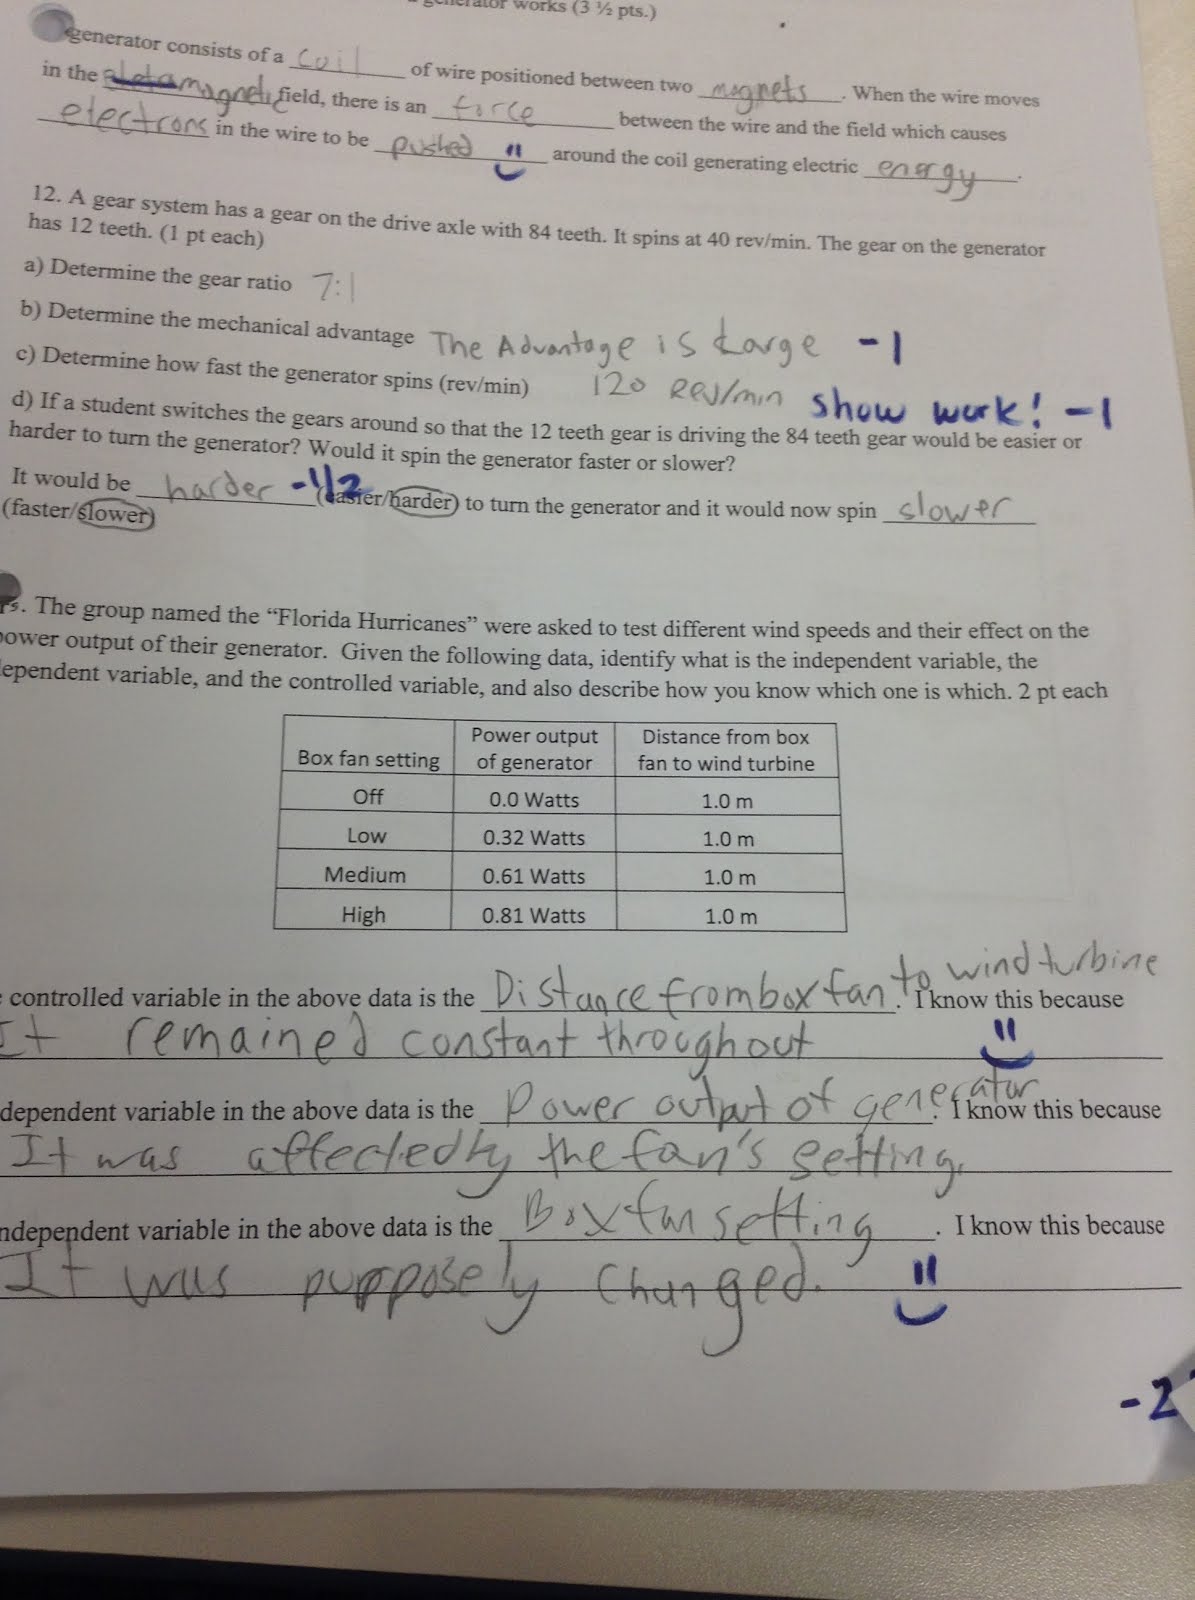 generator works (3 ½ pts.)
generator consists of a coil of wire positioned between two magnets. When the wire moves
in the magnetic field, there is an force between the wire and the field which causes
electrons in the wire to be pushed around the coil generating electric energy.
12. A gear system has a gear on the drive axle with 84 teeth. It spins at 40 rev/min. The gear on the generator
has 12 teeth. (1 pt each)
a) Determine the gear ratio 7:1
b) Determine the mechanical advantage The Advantage is Large -1
c) Determine how fast the generator spins (rev/min) 120 Rev/min show work! -1
d) If a student switches the gears around so that the 12 teeth gear is driving the 84 teeth gear would be easier or
harder to turn the generator? Would it spin the generator faster or slower?
It would be harder -1/2 (easier/harder) to turn the generator and it would now spin slower
(faster/slower)
The group named the “Florida Hurricanes” were asked to test different wind speeds and their effect on the
power output of their generator. Given the following data, identify what is the independent variable, the
dependent variable, and the controlled variable, and also describe how you know which one is which. 2 pt each
Box fan setting Power output of generator Distance from box fan to wind turbine
Off 0.0 Watts 1.0 m
Low 0.32 Watts 1.0 m
Medium 0.61 Watts 1.0 m
High 0.81 Watts 1.0 m
controlled variable in the above data is the Distance from box fan to wind turbine. I know this because
It remained constant throughout
dependent variable in the above data is the Power output of generator. I know this because
It was affected by the fan's setting.
independent variable in the above data is the Box fan setting. I know this because
It was purpposely Changed.
-2